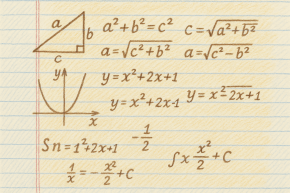 a b c
a² + b² = c²
c = √(a² + b²)
a = √(c² + b²)
a = √(c² − b²)
y x
y = x² + 2x + 1
y = x² + 2x - 1
y = x² − 2x + 1
Sn = 1² + 2x + 1
−1/2
1/x = −x²/2 + C
∫x x²/2 + C